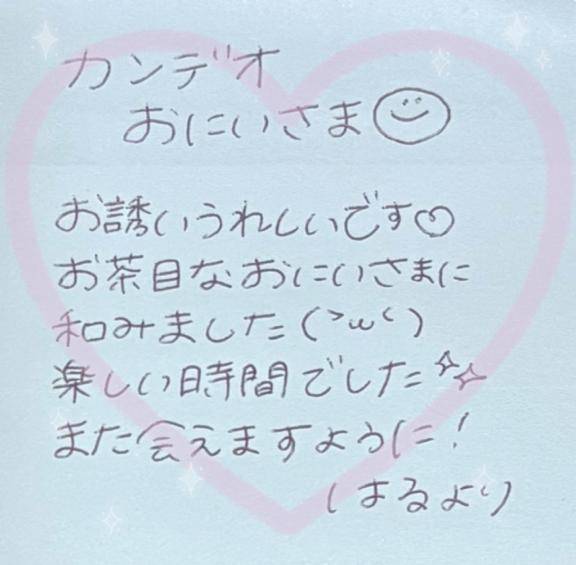 カンデオ
おにいさま
お誘いうれしいです♡
お茶目なおにいさまに
和みました(>ω<)
楽しい時間でした✨
また会えますように!
はるより